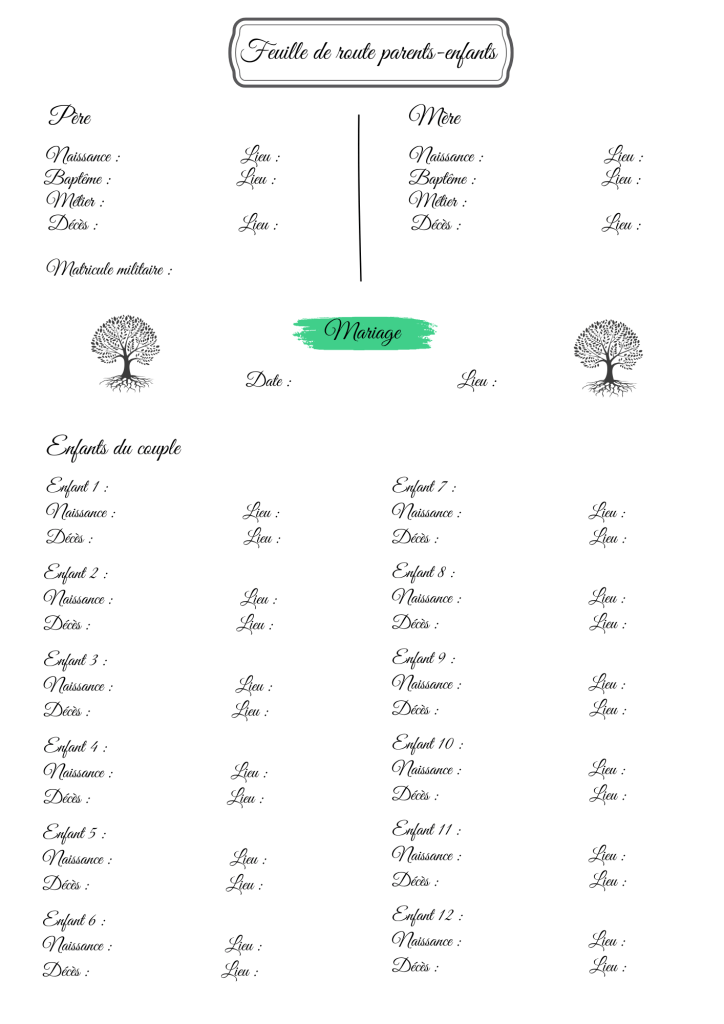 Feuille de route parents-enfants
Père
Naissance : Lieu :
Baptême : Lieu :
Métier :
Décès : Lieu :
Matricule militaire :
Mère
Naissance : Lieu :
Baptême : Lieu :
Métier :
Décès : Lieu :
Mariage
Date : Lieu :
Enfants du couple
Enfant 1 :
Naissance : Lieu :
Décès : Lieu :
Enfant 2 :
Naissance : Lieu :
Décès : Lieu :
Enfant 3 :
Naissance : Lieu :
Décès : Lieu :
Enfant 4 :
Naissance : Lieu :
Décès : Lieu :
Enfant 5 :
Naissance : Lieu :
Décès : Lieu :
Enfant 6 :
Naissance : Lieu :
Décès : Lieu :
Enfant 7 :
Naissance : Lieu :
Décès : Lieu :
Enfant 8 :
Naissance : Lieu :
Décès : Lieu :
Enfant 9 :
Naissance : Lieu :
Décès : Lieu :
Enfant 10 :
Naissance : Lieu :
Décès : Lieu :
Enfant 11 :
Naissance : Lieu :
Décès : Lieu :
Enfant 12 :
Naissance : Lieu :
Décès : Lieu :